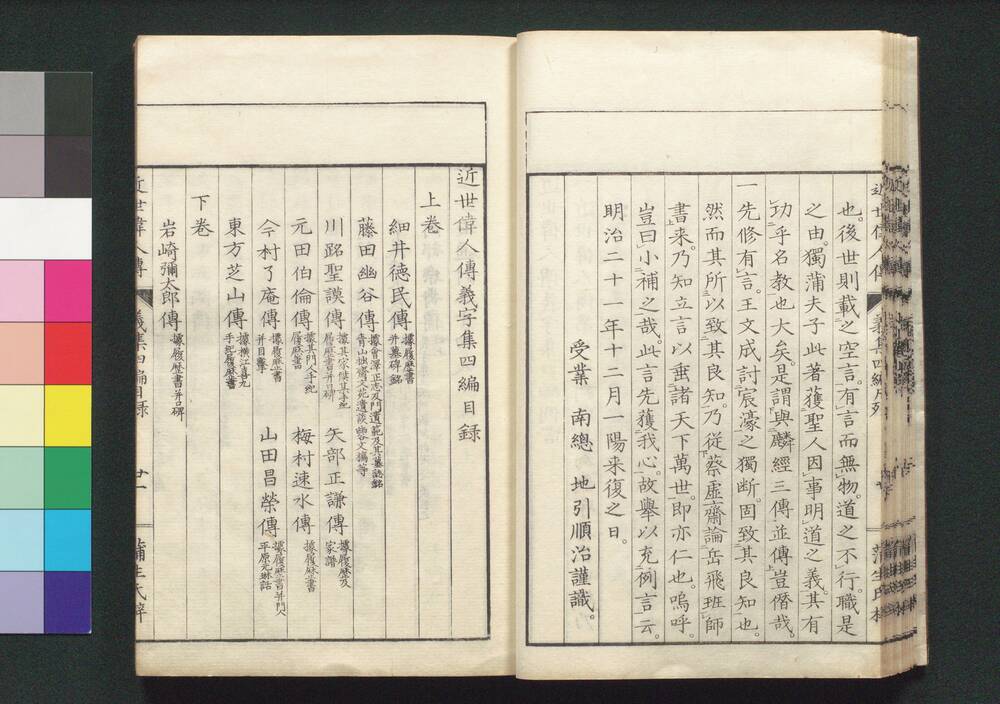 也。後世則載之空言。有言而無物。道之不行。職是
之由。獨蒲夫子此著獲聖人因事明道之義。其有
功乎名教也大矣。是謂與麟經三傳並傳豈僭哉。
一先修有言。王文成討宸濠之獨断。固致其良知也。
然而其所以致其良知。乃従蔡虚齋論岳飛班師
書来。乃知立言以垂諸天下萬世。即亦仁也。嗚呼。
豈曰小補之哉。此言先獲我心。故舉以充例言云。
明治二十一年十二月一陽来復之日。
受業 南總 地引順治謹識。
近世偉人傳義字集四編目録
上卷
細井徳民傳 據履歴書并墓碑銘
藤田幽谷傳
川路聖謨傳 矢部正謙傳 據履歴及家譜
元田伯倫傳 據其門人手紀履歴書 梅村速水傳 據履歴書
今村了庵傳 據履歴書并目撃 山田昌榮傳 據履歴書并門人平原元琳話
東方芝山傳 手紀履歴書
下卷
岩崎彌太郎傳 據履歴書并口碑
近世偉人傳 義集四編目録 廿一